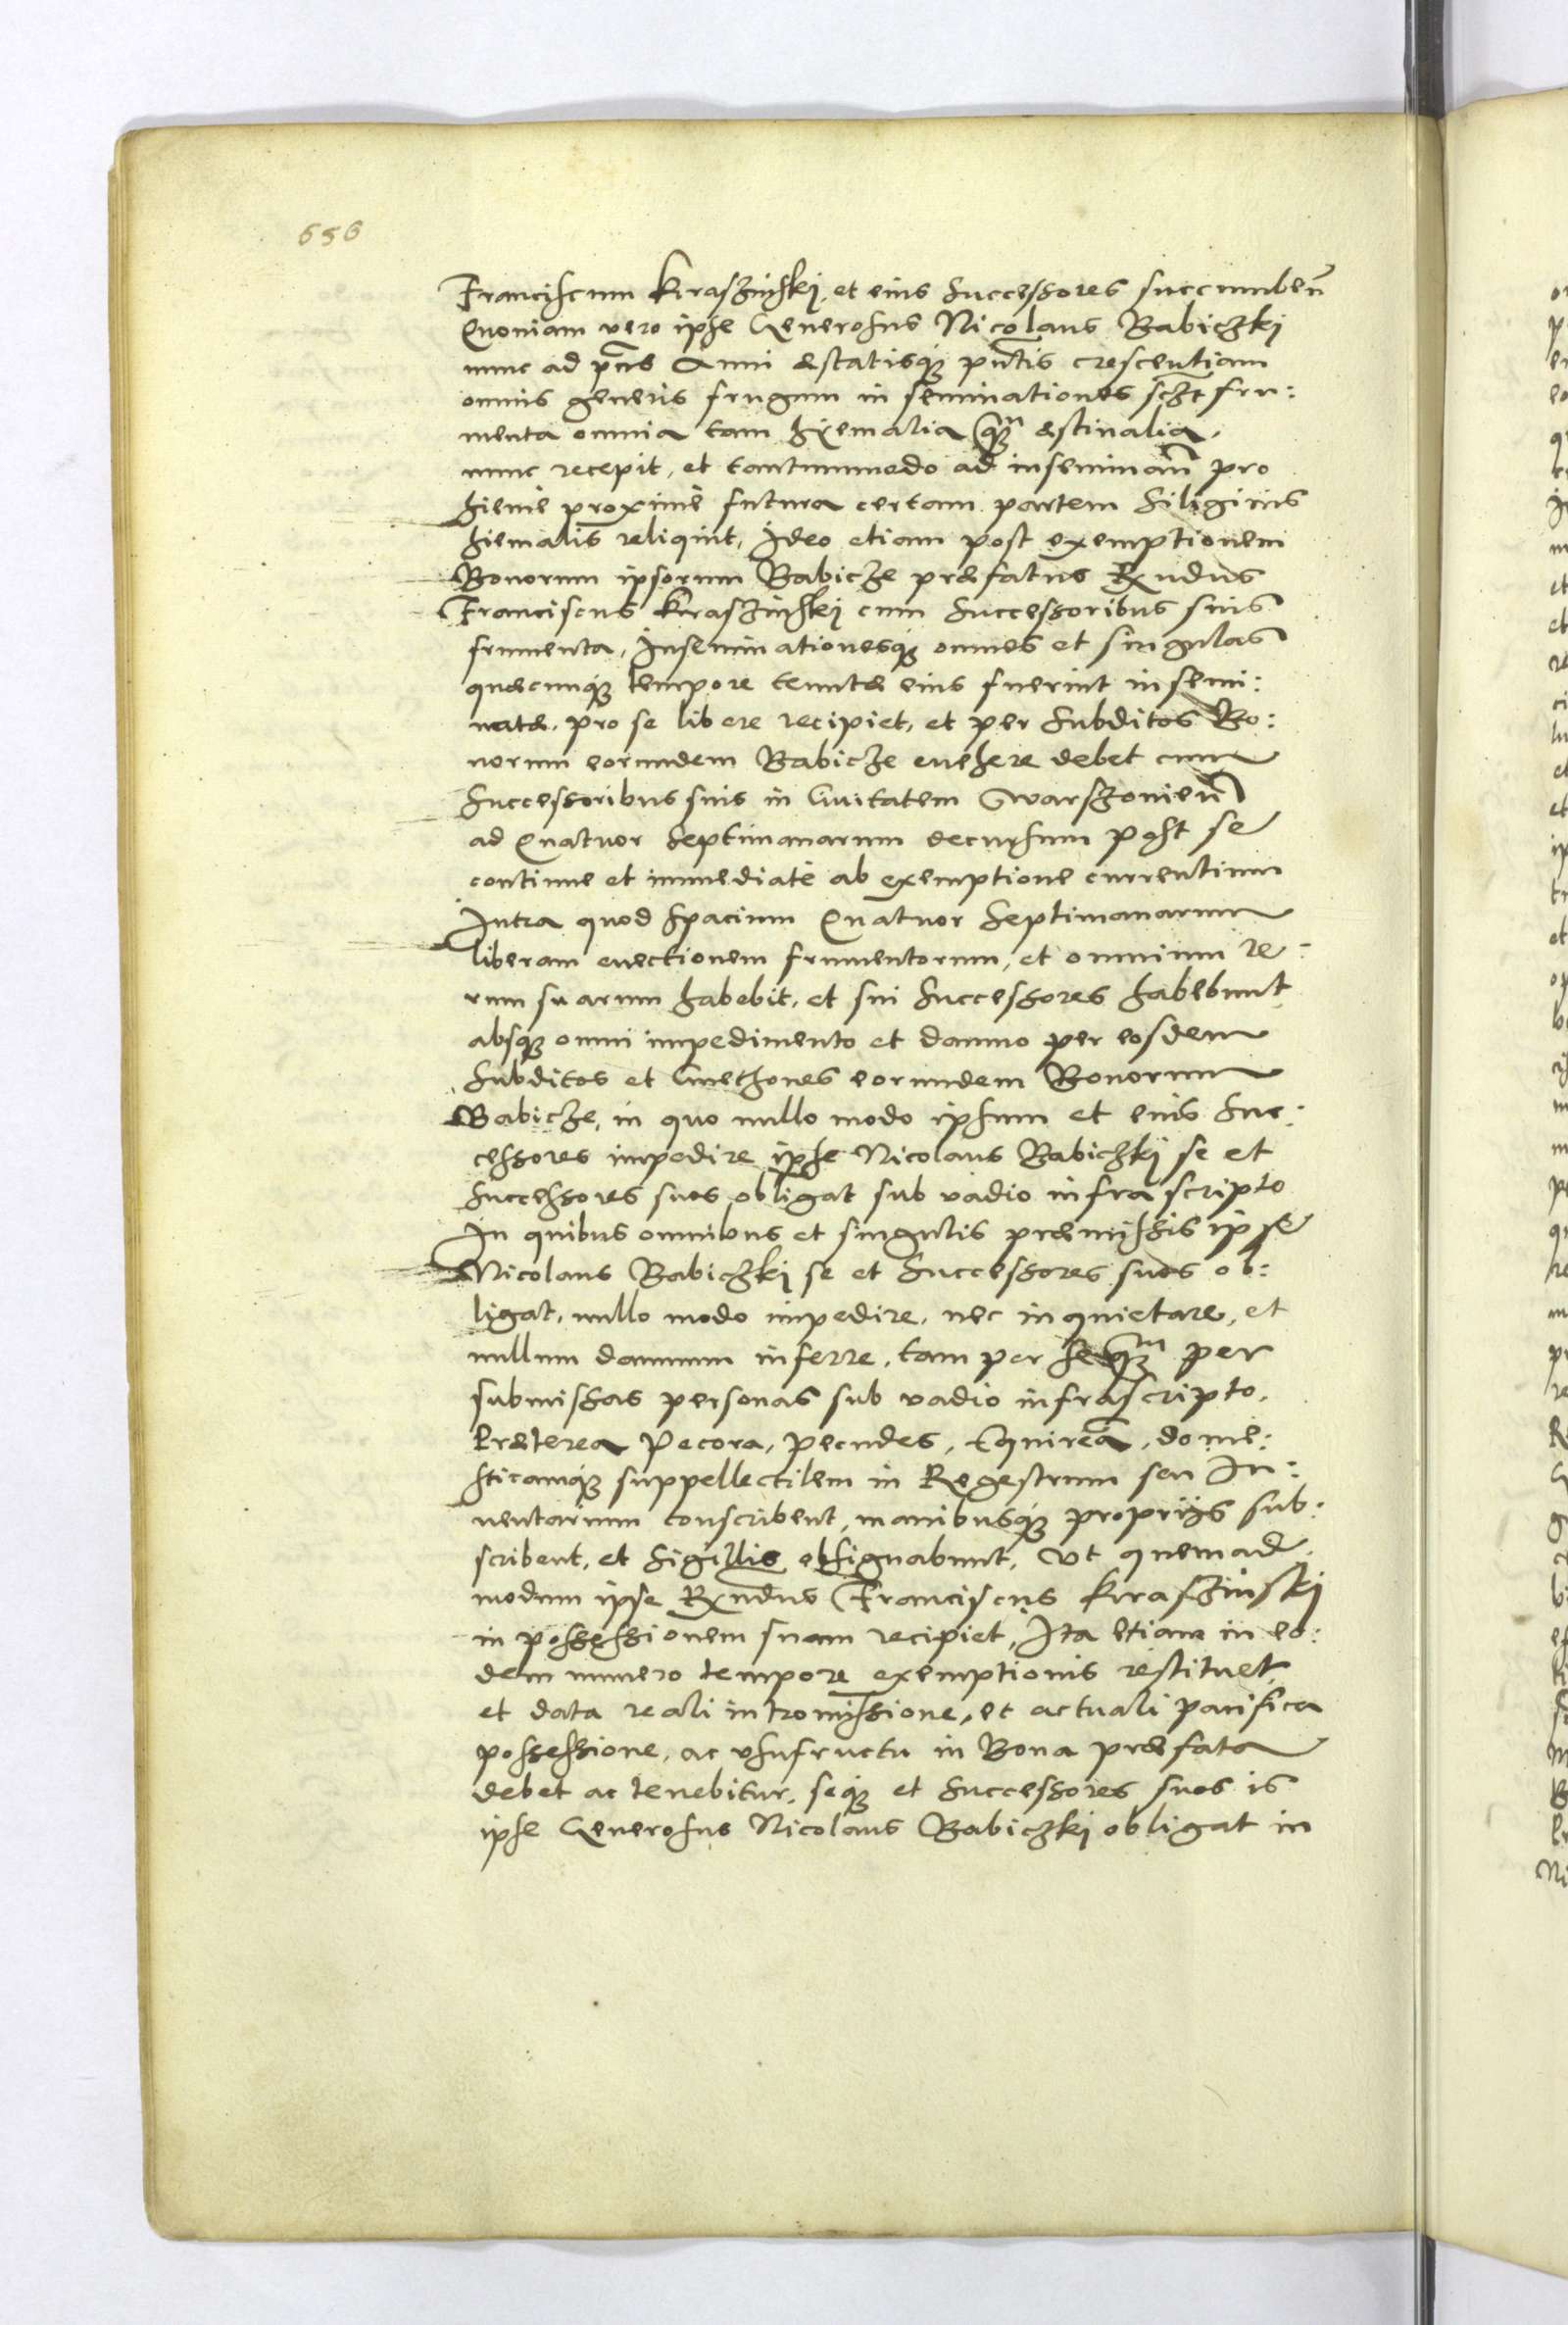 656
Franciscum Kraszinskÿ, et eius Successores succumben̄
Quoniam vero ipse Generosus Nicolaus Babiczkj
nunc ad pn̄s Anni æstatisq꜕ pn̄tis crescentiam
omnis generis frugum in seminationes sczt fru:
menta omnia tam hÿemalia q꜕ᵐ æstiualia,
nunc recepit, et tantummodo ad inseminan̄ pro
hieme proximè futura certam partem Siliginis
hiemalis reliquit, Ideo etiam post exemptionem
Bonorum ipsorum Babicze præfatus Rx̄ndus
Franciscus Kraszinskj cum Successoribus suis
frumenta, Inseminationesq꜕ omnes et singulas
quæcunq꜕ tempore tenutæ eius fuerint insemi:
natæ, pro se libere recipiet, et per Subditos Bo:
norum eorundem Babicze euehere debet cum
Successoribus suis in Ciuitatem Warszouien̄
ad Quatuor Septimanarum decursum post se
continue et immediatè ab exemptione currentium
Intra quod spacium Quatuor Septimanarum
liberam euectionem frumentorum, et omnium re:
rum suarum habebit, et sui Successores habebunt
absq꜕ omni impedimento et damno per eosdem
Subditos et Cmethones eorundem Bonorum
Babicze, in quo nullo modo ipsum et eius Suc:
cessores impedire ipse Nicolaus Babiczkj se et
Successores suos obligat sub vadio infra scripto
In quibus omnibus et singulis præmissis ipse
Nicolaus Babiczkj se et Successores suos ob:
ligat, nullo modo impedire, nec inquietare, et
nullum damnum inferre, tam per se q꜕ᵐ per
submissas personas sub vadio infrascripto.
Præterea Pecora, pecudes, Equiream̄, dome:
sticamq꜕ suppellectilem in Regestrum seu In:
uentarium conscribent, manibusq꜕ proprijs sub:
scribent, et Sigillis obsignabunt, Vt quemad:
modum ipse Rx̄ndus Franciscus Kraszinskj
in possessionem suam recipiet, Ita etiam in eo:
dem numero tempore exemptionis restituet,
et data reali intromissione, et actuali pacifica
possessione, ac vsufructu in Bona præfata
debet ac tenebitur, seq꜕ et Successores suos is
ipse Generosus Nicolaus Babiczkj obligat in